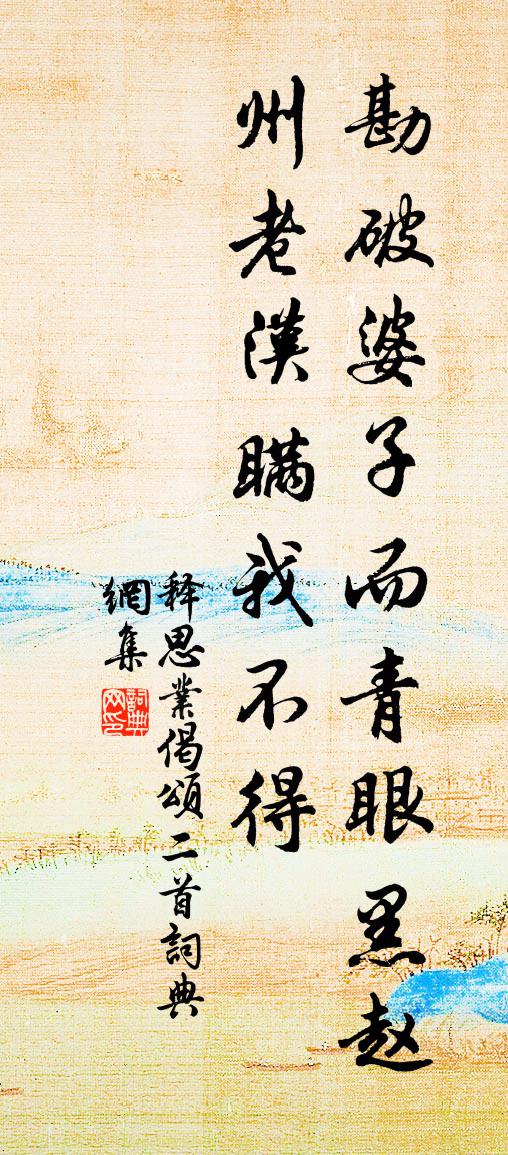 勘破婆子而青眼黑赵
州老漢瞞我不得
释思業偈頌二首詞典
網集
詞典
网印